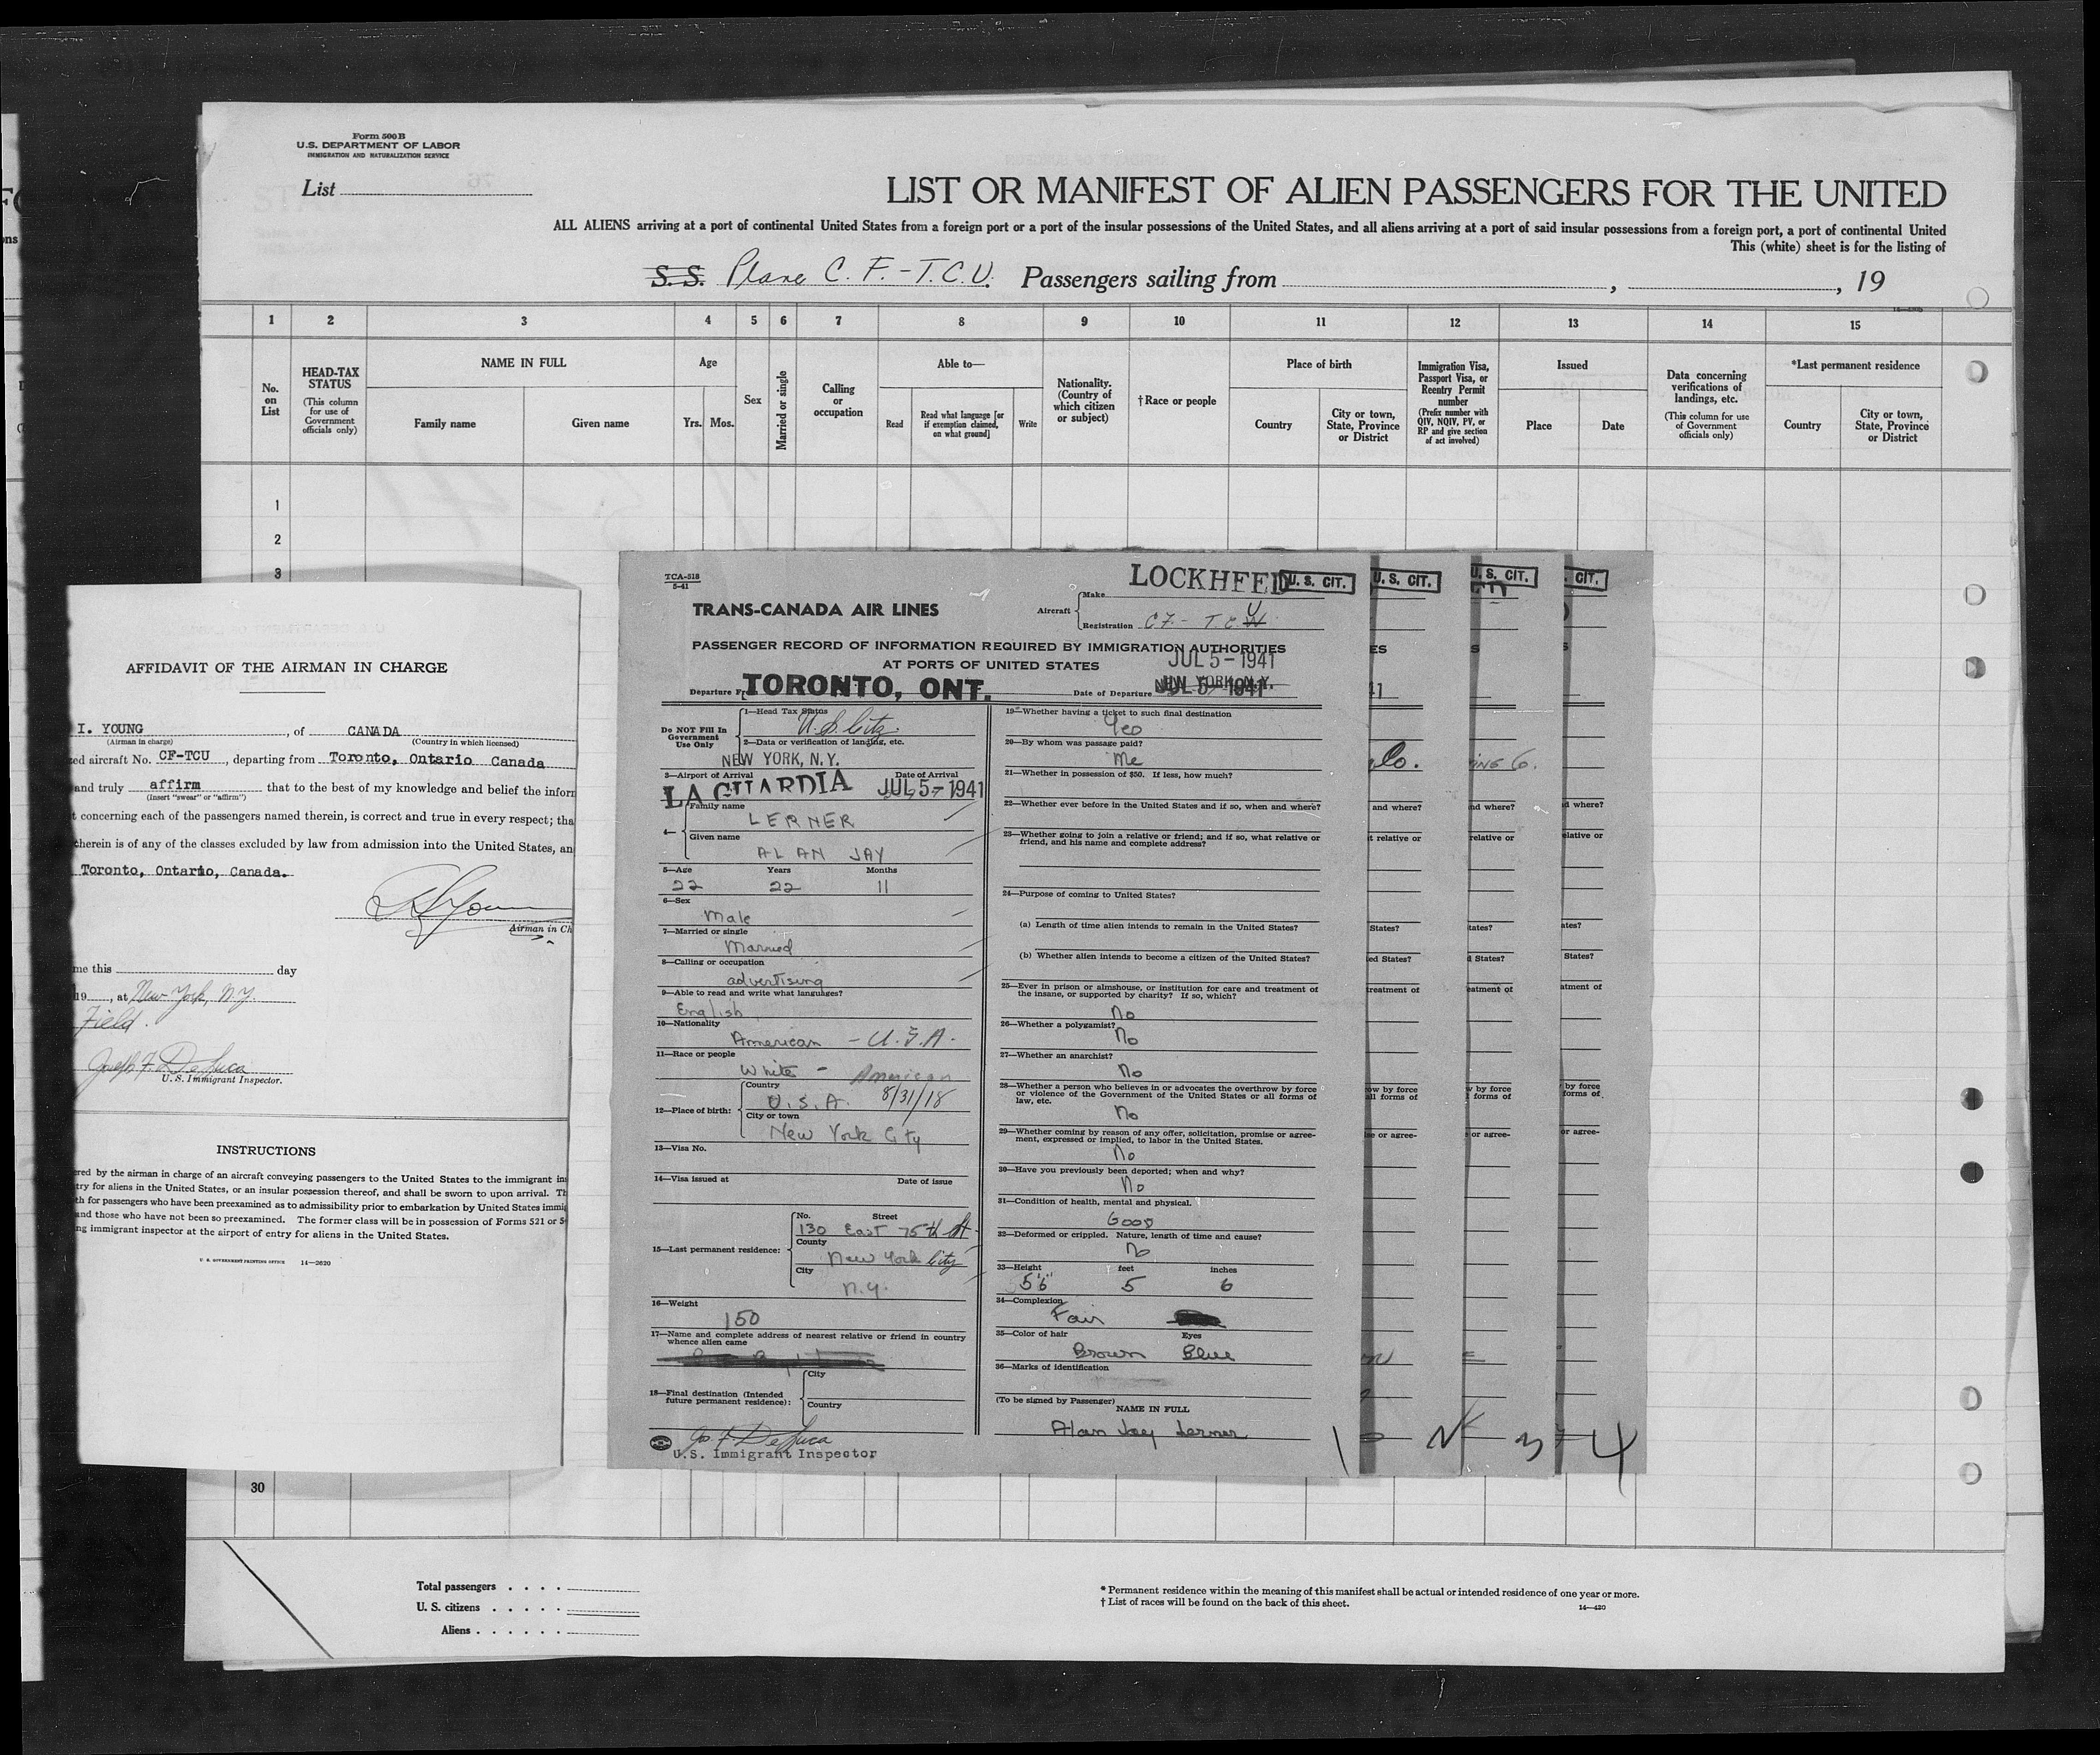 Form 500 B
U.S. DEPARTMENT OF LABOR
IMMIGRATION AND NATURALIZATION SERVICE
List
LIST OR MANIFEST OF ALIEN PASSENGERS FOR THE UNITED
ALL ALIENS arriving at a port of continental United States from a foreign port or a port of the insular possessions of the United States, and all aliens arriving at a port of said insular possessions from a foreign port, a port of continental United
This (white) sheet is for the listing of
S.S. Plane C. F. - T.C.U. Passengers sailing from , , 19
1 2 3 4 5 6 7 8 9 10 11 12 13 14 15
No. on List
HEAD-TAX STATUS
(This column for use of Government officials only)
NAME IN FULL
Family name Given name
Age
Yrs. Mos.
Sex
Married or single
Calling or occupation
Able to—
Read
Read what language [or if exemption claimed, on what ground]
Write
Nationality. (Country of which citizen or subject)
†Race or people
Place of birth
Country
City or town, State, Province or District
Immigration Visa, Passport Visa, or Reentry Permit number
(Prefix number with QIV, NQIV, PV, or RP and give section of act involved)
Issued
Place Date
Data concerning verifications of landings, etc.
(This column for use of Government officials only)
*Last permanent residence
Country
City or town, State, Province or District
1
2
3
AFFIDAVIT OF THE AIRMAN IN CHARGE
I. YOUNG , of CANADA
(Airman in charge) (Country in which licensed)
ed aircraft No. CF-TCU , departing from Toronto, Ontario Canada
and truly affirm that to the best of my knowledge and belief the infor
(Insert "swear" or "affirm")
t concerning each of the passengers named therein, is correct and true in every respect; tha
therein is of any of the classes excluded by law from admission into the United States, an
Toronto, Ontario, Canada.
Airman in Ch
me this day
19 , at New York, N.Y.
Field.
Joseph F. DeLuca
U.S. Immigrant Inspector.
INSTRUCTIONS
ered by the airman in charge of an aircraft conveying passengers to the United States to the immigrant in
try for aliens in the United States, or an insular possession thereof, and shall be sworn to upon arrival. Th
th for passengers who have been preexamined as to admissibility prior to embarkation by United States immi
and those who have not been so preexamined. The former class will be in possession of Forms 521 or 5
ng immigrant inspector at the airport of entry for aliens in the United States.
U. S. GOVERNMENT PRINTING OFFICE 14—2620
TCA-518
5-41
TRANS-CANADA AIR LINES
LOCKHEED
U. S. CIT.
Aircraft Make
Registration CF - T.C.U
PASSENGER RECORD OF INFORMATION REQUIRED BY IMMIGRATION AUTHORITIES
AT PORTS OF UNITED STATES
JUL 5 - 1941
Departure F TORONTO, ONT. Date of Departure JUL 5 - 1941 NEW YORK, N.Y.
Do NOT Fill In Government Use Only
1—Head Tax Status
U.S. Citz.
2—Data or verification of landing, etc.
NEW YORK, N.Y.
3—Airport of Arrival Date of Arrival
LA GUARDIA JUL 5 - 1941
4—
Family name
LERNER
Given name
ALAN JAY
5—Age Years Months
22 22 11
6—Sex
Male
7—Married or single
Married
8—Calling or occupation
advertising
9—Able to read and write what languages?
English
10—Nationality
American - U.S.A.
11—Race or people
White - American
12—Place of birth:
Country
U.S.A. 8/31/18
City or town
New York City
13—Visa No.
14—Visa issued at Date of issue
15—Last permanent residence:
No. Street
130 East 75th St.
County
New York City
City
N.Y.
16—Weight
150
17—Name and complete address of nearest relative or friend in country whence alien came
18—Final destination (Intended future permanent residence):
City
Country
Jos. F. DeLuca
U.S. Immigrant Inspector
19—Whether having a ticket to such final destination
Yes
20—By whom was passage paid?
Me
21—Whether in possession of $50. If less, how much?
22—Whether ever before in the United States and if so, when and where?
23—Whether going to join a relative or friend; and if so, what relative or friend, and his name and complete address?
24—Purpose of coming to United States?
(a) Length of time alien intends to remain in the United States?
(b) Whether alien intends to become a citizen of the United States?
25—Ever in prison or almshouse, or institution for care and treatment of the insane, or supported by charity? If so, which?
No
26—Whether a polygamist?
No
27—Whether an anarchist?
No
28—Whether a person who believes in or advocates the overthrow by force or violence of the Government of the United States or all forms of law, etc.
No
29—Whether coming by reason of any offer, solicitation, promise or agreement, expressed or implied, to labor in the United States.
No
30—Have you previously been deported; when and why?
No
31—Condition of health, mental and physical.
GOOD
32—Deformed or crippled. Nature, length of time and cause?
No
33—Height feet inches
5'6" 5 6
34—Complexion
Fair
35—Color of hair Eyes
Brown Blue
36—Marks of identification
(To be signed by Passenger)
NAME IN FULL
Alan Jay Lerner
U. S. CIT.
U. S. CIT.
. CIT.
Co.
ING Co.
30
Total passengers
U. S. citizens
Aliens
* Permanent residence within the meaning of this manifest shall be actual or intended residence of one year or more.
† List of races will be found on the back of this sheet.
14—420